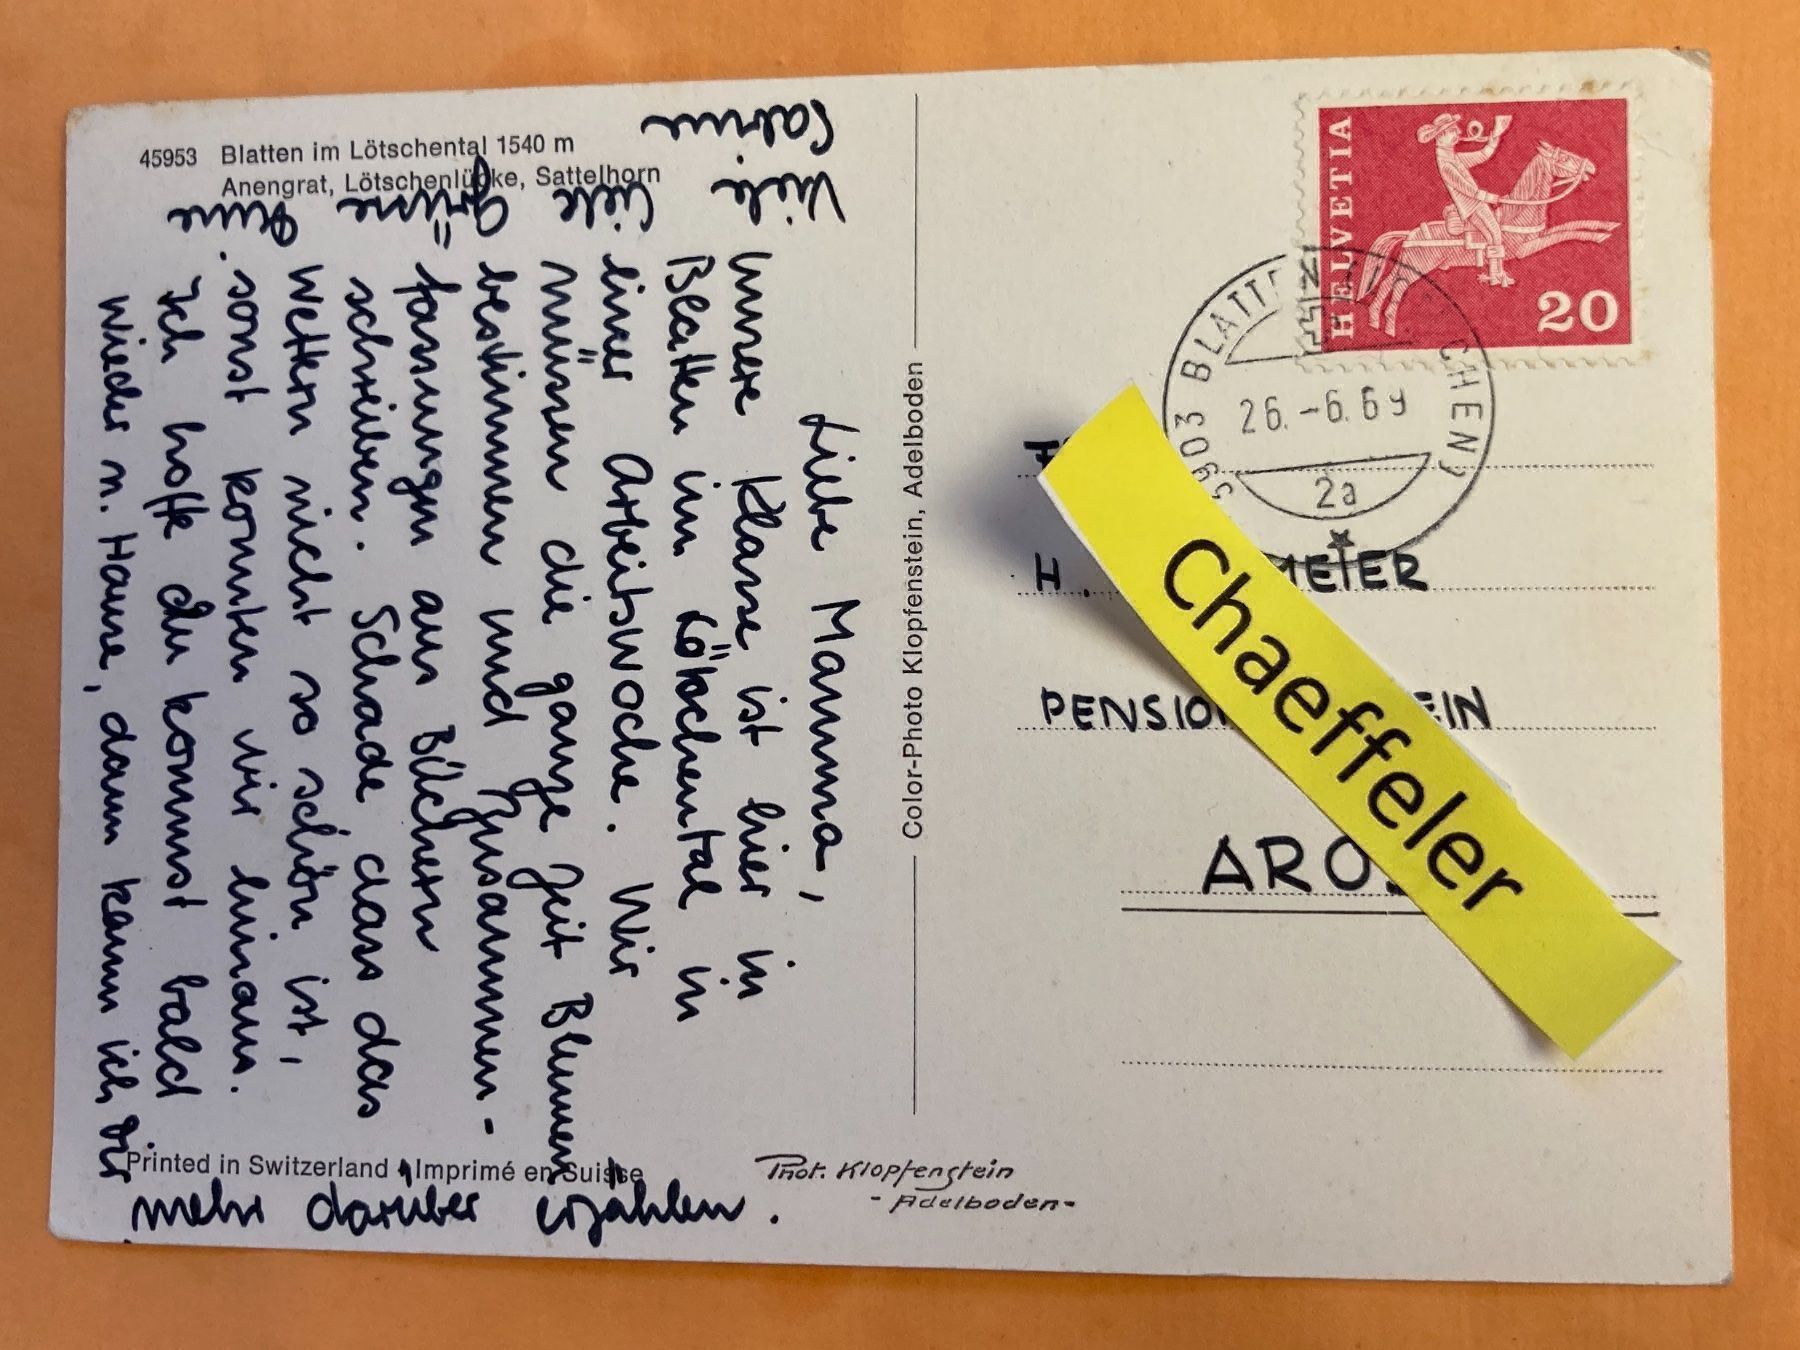 45953 Blatten im Lötschental 1540 m
Anengrat, Lötschenlücke, Sattelhorn
Liebe Mamma,
unsere Klasse ist hier in
Blatten im Lötschental in
einer Arbeitswoche. Wir
müssen die ganze Zeit Blumen
bestimmen und Zusammen-
fassungen aus Büchern
schreiben. Schade dass das
Wettern nicht so schön ist,
sonst konnten wir hinaus.
Ich hoffe du kommst bald
wieder n. Hause, dann kann ich Dir
mehr darüber erzählen.
Viele liebe Grüsse Deine
Sabine
Printed in Switzerland Imprimé en Suisse
Color-Photo Klopfenstein, Adelboden
Phot. Klopfenstein
- Adelboden -
HELVETIA
20
3903 BLATTEN
26.-6.69
2a
H. MEIER
PENSION EIN
ARO
Chaeffeler